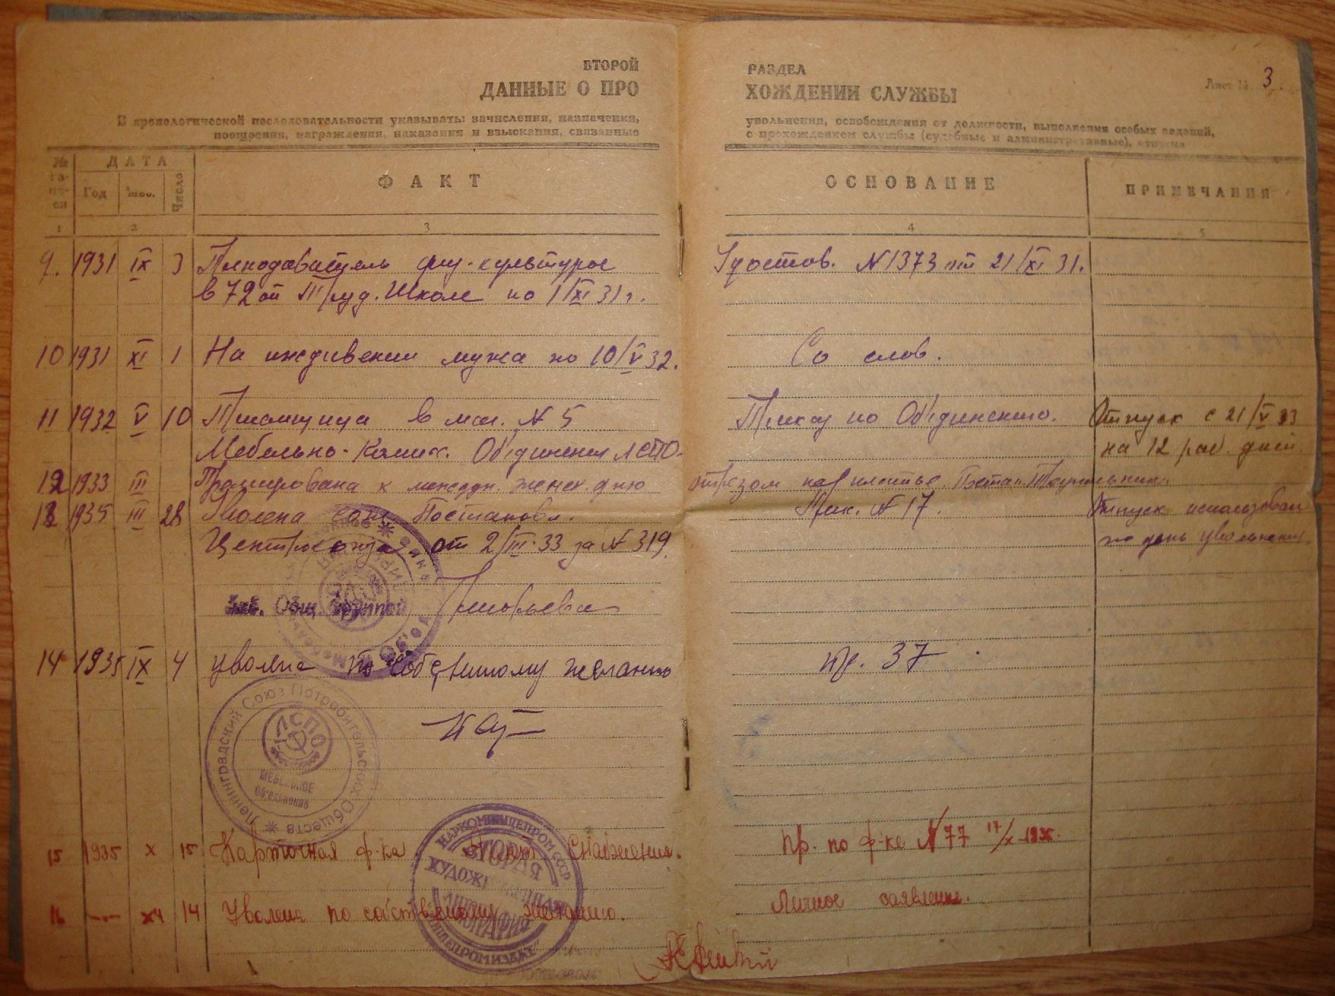 ВТОРОЙ РАЗДЕЛ
ДАННЫЕ О ПРОХОЖДЕНИИ СЛУЖБЫ
Лист № 3.
В хронологической последовательности указывать: зачисления, назначения, увольнения, освобождения от должности, выполнения особых заданий,
поощрения, награждения, наказания и взыскания, связанные с прохождением службы (судебные и административные), отпуска
№ ДАТА ФАКТ ОСНОВАНИЕ ПРИМЕЧАНИЯ
Год Число
1 2 3 4 5
9. 1931 IX 3 Преподаватель физ-культуры Удостов. N1373 от 21/XI 31.
в 72ой Труд. Школе по 1/XI 31 г.
10 1931 XI 1 На иждивении мужа по 10/V 32. Со слов.
11 1932 V 10 в маг. N 5 Приказ по Об'единению. Отпуск с 21/V 33
Мебельно-Комисс. Об'единения ЛСПО. на 12 раб. дней
12 1933 III Премирована к междун. женск. дню отрезом
13 1935 III 28 Уволена согл. Постановл. Прик. N 17. Отпуск использован
Центросоюза от 2/III-33 за N 319. по день увольнения
Зав. Общ. группой
14 1935 IX 4 уволена по собственному желанию пр. 37
Ленинградский Союз Потребительских Обществ
ЛСПО
МЕБЕЛЬНОЕ
Об'единение
15 1935 X 15 Карточная ф-ка снабжения. Пр. по ф-ке N 77 17/X 1935.
НАРКОМПИЩЕПРОМ СССР
ВТОРАЯ
16 14 Уволена по собственному желанию. Личное заявление.